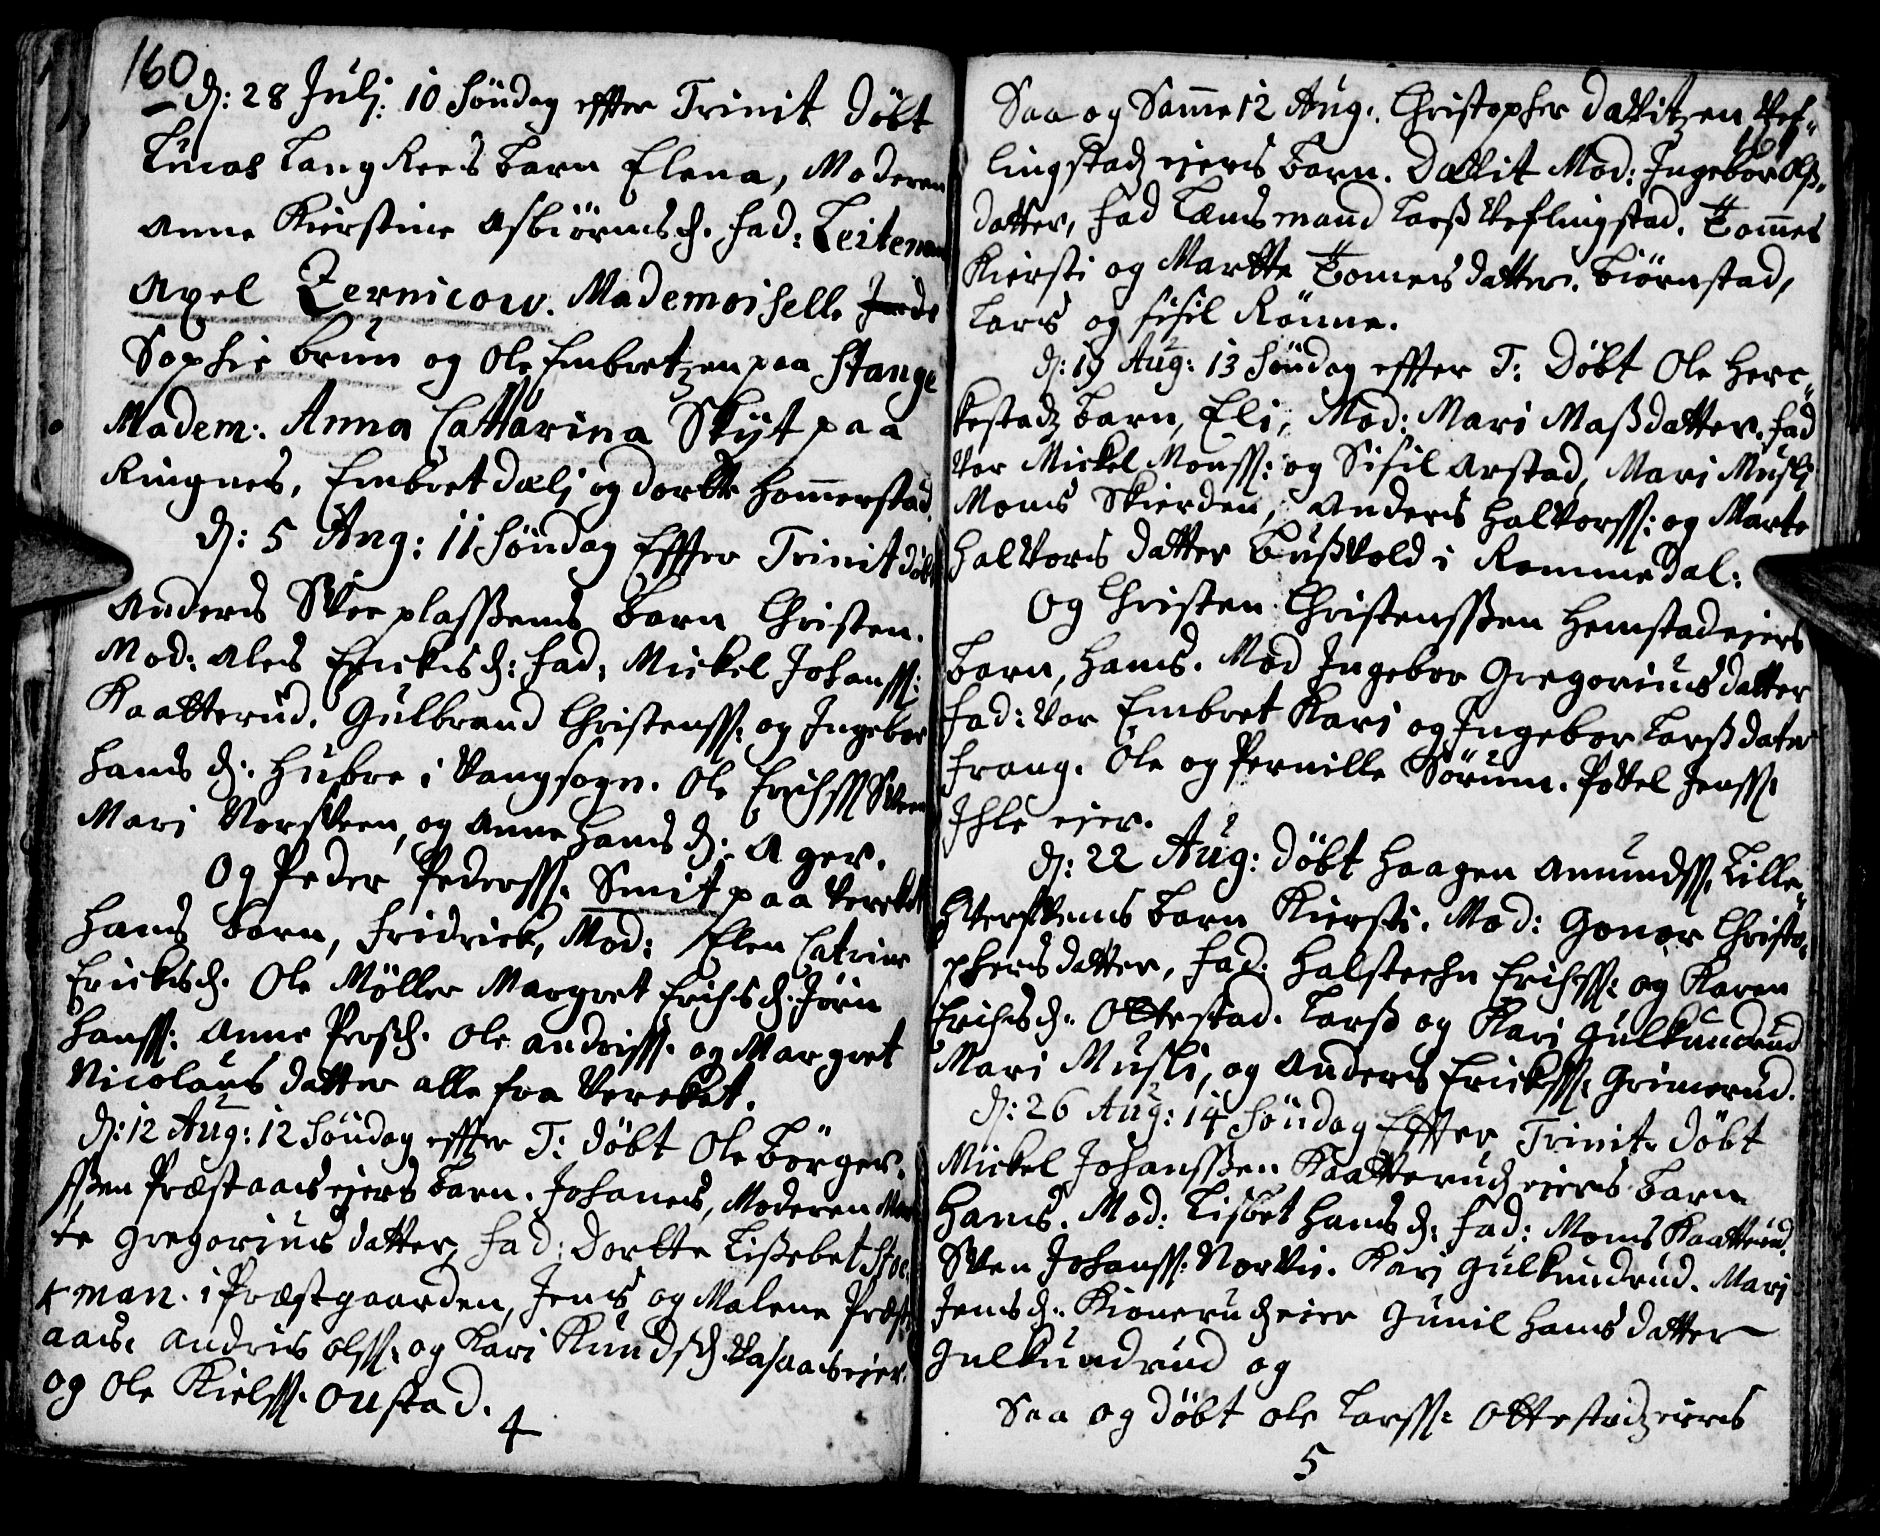 160
d: 28 Julj: 10 Söndag effter Trinit Döbt
Lucas Lang Rees barn Elena, Moderen
Anne Kierstine Asbiörnsd. fad: Leitenan
Axel Zernicow. Mademoiselle
Sophie Brun og Ole Embretzen paa Stange
Madem: Anna Cattarina Skyt paa
Ringnes, Embret Dælj og Dortte Hommerstad.
d: 5 Aug: 11 Söndag Effter Trinit döbt
Anders Skeeplassens barn Christen.
Mod: Ales Ericksd: fad: Mickel Johanss:
Kaatterud. Gulbrand Christenss: og Ingebor
Hans d: Hubre i Vangsogn. Ole Erichss Skeen
Mari Norskeen, og Anne Hans d: Ager.
Og Peder Pederss. Smit paa Verket
Hans barn, Fridrick, Mod: Elen Catrine
Ericksd. Ole Möller Margret Erichsd. Jörn
Hanss: Anne Persd. Ole Andriss. og Margret
Nicolaus datter alle fra Vercket.
d: 12 Aug: 12 Söndag effter T: döbt Ole Börger-
ssen Præstaasejers barn. Johanes, Moderen Mar
te Gregorius datter, fad: Dortte Lissebet Stoc
kman. i Præstgaarden, Jens og Malene Præst
aas. Andris Olss: og Kari Knudsd. Vasaasejer.
og Ole Kielss. Oustad.
4
Saa og Samme 12 Aug: Christopher Davitzen Vef-
161
lingstad ejers barn. Davit Mod: Ingebor Olss
datter, fad Lænsmand Larss Veflingstad. Tommes
Kiersti og Martte Tomes datter. Biörnstad,
Lars og Sisil Rönne.
d: 19 Aug: 13 Söndag effter T: Döbt Ole Her-
kestadz barn, Eli, Mod: Mari Massdatter. fad
var Mickel Monss: og Sisil Arstad, Mari Musli
Mons Skierden, Anders Halvorss: og Marte
Halvors datter Bussvold i Rommedal:
Og Christen Christenssen Hemstadejers
barn, Hans. Mod Ingebor Gregorius datter
fad: var Embret Kari og Ingebor Larssdater
Frang. Ole og Pernille Sörum. Povel Jenss:
Ihle ejer.
d: 22 Aug: döbt Haagen Amundss. Lille-
Hverskens barn Kiersti. Mod: Gonor Christo-
phersdatter, fad: Halsteehn Erichss: og Karen
Erichsd. Ottestad. Larss og Kari Gulkundrud
Mari Musli, og Anders Erickss: Grimerud.
d: 26 Aug: 14 Söndag Effter Trinit. döbt
Mickel Johanssen Kaatterud ejers barn
Hans. Mod: Lisbet Hansd: fad: Mons Kaatterud.
Sven Johanss: Norvie. Kari Gulkundrud. Mari
Jensd. Kionerud ejer Gunil Hans datter
Gulkundrud og
Saa og döbt Ole Larss: Ottestadz ejers
5